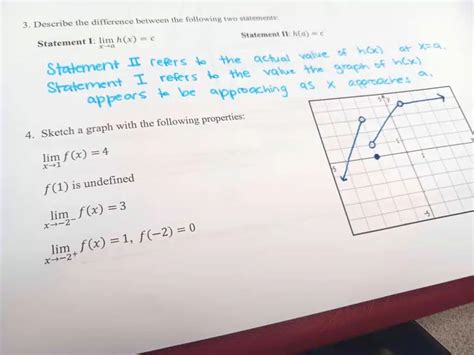 3. Describe the difference between the following two statements:
Statement I: lim h(x) = c
x→a
Statement II: h(a) = c
Statement II refers to the actual value of h(x) at x=a.
Statement I refers to the value the graph of h(x)
appears to be approaching as x approaches a.
4. Sketch a graph with the following properties:
lim f(x) = 4
x→1
f(1) is undefined
lim f(x) = 3
x→-2⁻
lim f(x) = 1, f(-2) = 0
x→-2⁺